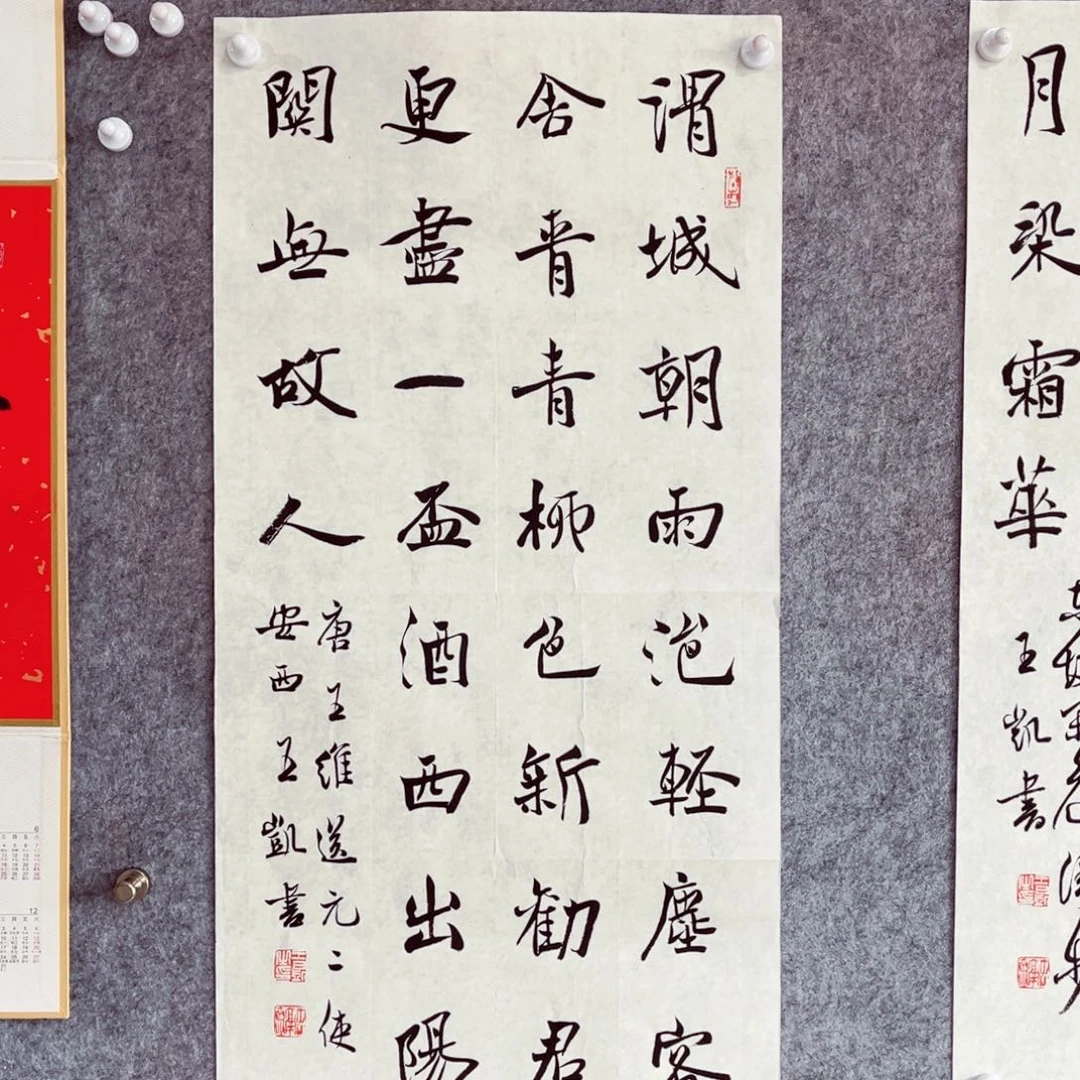 月染霜華
王凱書
谓城朝雨浥輕塵客
舍青青柳色新勸君
更盡一盃酒西出陽
關無故人
唐王維送元二使
安西王凱書
6
12